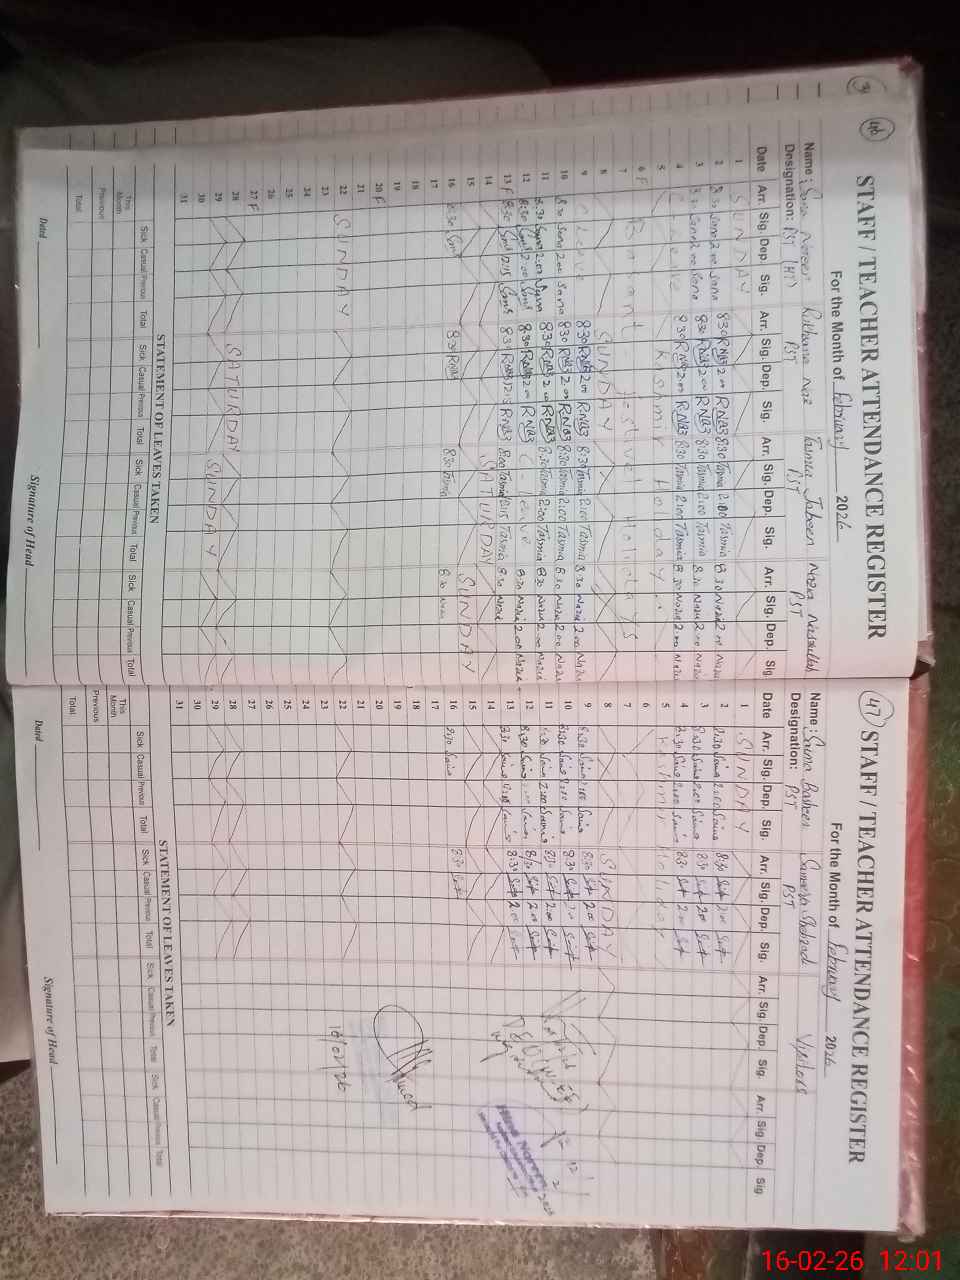 46
STAFF / TEACHER ATTENDANCE REGISTER
For the Month of February 2026
Name : Sana Noreen Rukhsana Naz Tasmia Jabeen Nazia Nasrullah
Designation: PST (HT) PST PST PST
Date Arr. Sig. Dep. Sig. Arr. Sig. Dep. Sig. Arr. Sig. Dep. Sig. Arr. Sig. Dep. Sig.
1 SUNDAY
2 8:30 Sana 2:00 Sana 8:30 RNAZ 2:00 RNAZ 8:30 Tasmia 2:00 Tasmia 8:30 Nazia 2:00 Nazia
3 8:30 Sana 2:00 Sana 8:30 RNAZ 2:00 RNAZ 8:30 Tasmia 2:00 Tasmia 8:30 Nazia 2:00 Nazia
4 C Leave 8:30 RNAZ 2:00 RNAZ 8:30 Tasmia 2:00 Tasmia 8:30 Nazia 2:00 Nazia
5 Kashmir holiday
6 F Basant festivel Holidays
7
8 SUNDAY
9 C Leave 8:30 RNAZ 2:00 RNAZ 8:30 Tasmia 2:00 Tasmia 8:30 Nazia 2:00 Nazia
10 8:30 Sana 2:00 Sana 8:30 RNAZ 2:00 RNAZ 8:30 Tasmia 2:00 Tasmia 8:30 Nazia 2:00 Nazia
11 8:30 Sana 2:00 Sana 8:30 RNAZ 2:00 RNAZ 8:30 Tasmia 2:00 Tasmia 8:30 Nazia 2:00 Nazia
12 8:30 2:00 8:30 RNAZ 2:00 RNAZ C-Leave 8:30 Nazia 2:00 Nazia
13 F 8:30 12:15 8:30 RNAZ 12:15 RNAZ 8:00 Tasmia 12:15 Tasmia 8:30 Nazia
14 SATURDAY
15 SUNDAY
16 8:30 8:30 RNAZ 8:30 Tasmia 8:30 Nazia
17
18
19
20 F
21
22 SUNDAY
23
24
25
26
27 F
28 SATURDAY
29 SUNDAY
30
31
STATEMENT OF LEAVES TAKEN
Sick Casual Previous Total Sick Casual Previous Total Sick Casual Previous Total Sick Casual Previous Total
This Month
Previous
Total
Dated Signature of Head
47
STAFF / TEACHER ATTENDANCE REGISTER
For the Month of February 2026
Name : Saima Basheer Sumaira Shehzadi Visitors
Designation: PST PST
Date Arr. Sig. Dep. Sig. Arr. Sig. Dep. Sig. Arr. Sig. Dep. Sig. Arr. Sig. Dep. Sig
1 SUNDAY
2 8:30 Saima 2:00 Saima 8:30 2:00
3 8:30 Saima 2:00 Saima 8:30 2:00
4 8:30 Saima 2:00 Saima 8:30 2:00
5 Kashmir Holiday
6
7
8 SUNDAY
9 8:30 Saima 2:00 Saima 8:30 2:00
10 8:30 Saima 2:00 Saima 8:30 2:00
11 8:30 Saima 2:00 Saima 8:30 2:00
12 8:30 Saima 2:00 Saima 8:30 2:00
13 8:30 Saima Saima 8:30 2:00
14
15
16 8:30 Saima 8:30
17
18
19
20
21
22
23
24
25
26
27
28
29
30
31
16/02/26
STATEMENT OF LEAVES TAKEN
Sick Casual Previous Total Sick Casual Previous Total Sick Casual Previous Total Sick Casual Previous Total
This Month
Previous
Total
Dated Signature of Head
16-02-26 12:01